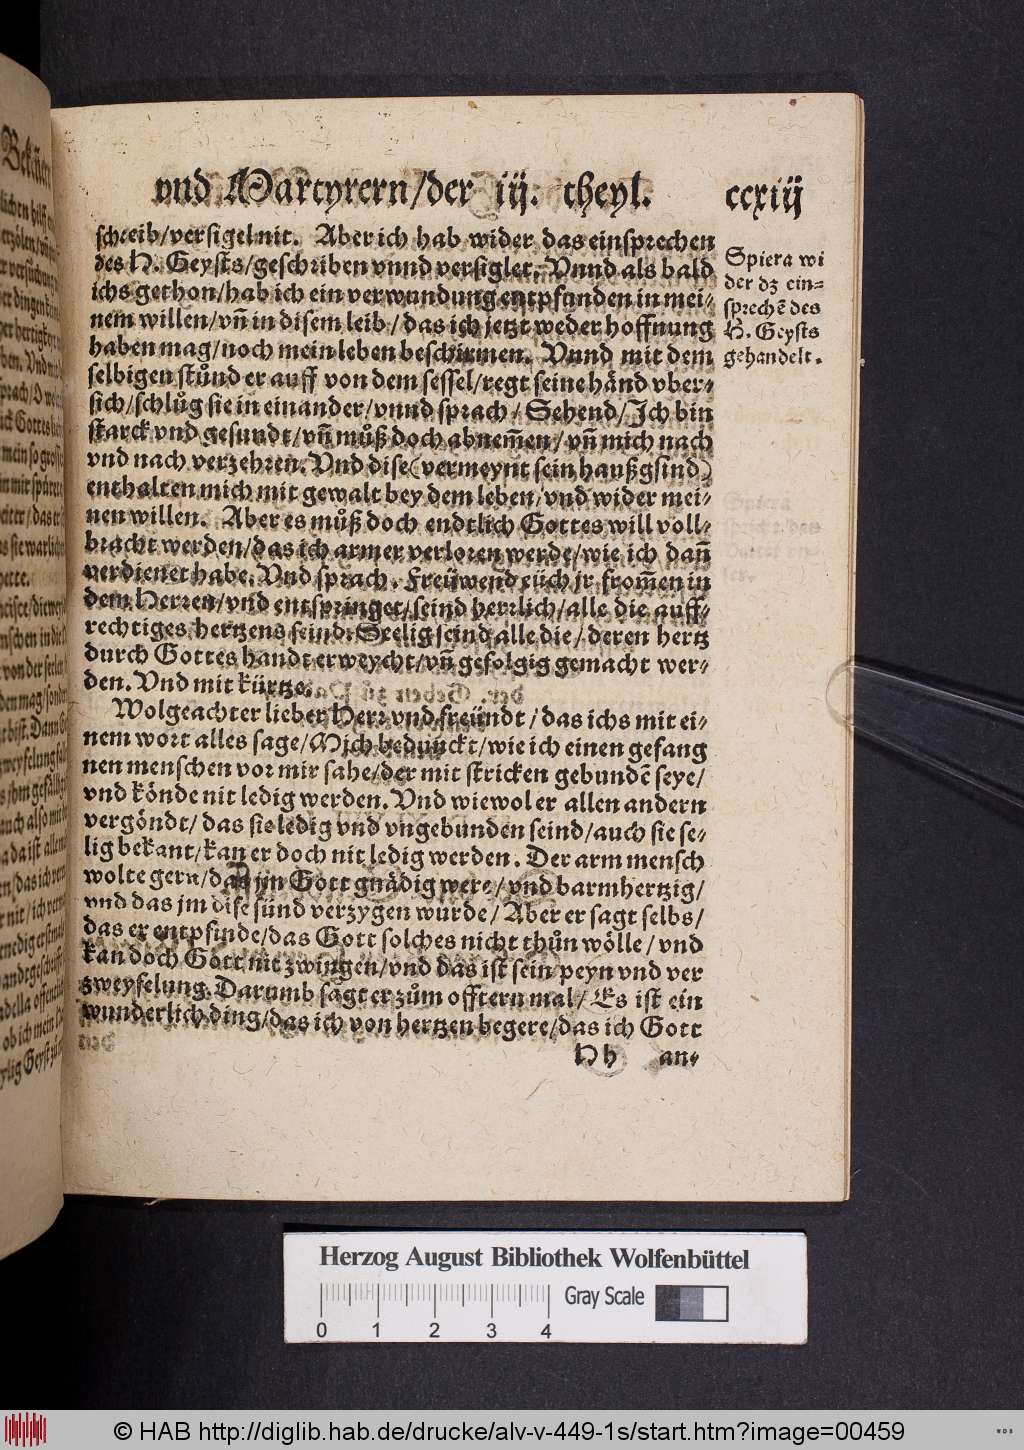 vnd Martyrern/der iij. theyl. ccxiij
schreib/versigel nit. Aber ich hab wider das einsprechen
des H. Geysts/geschriben vnnd versiglet. Vnnd als bald
ichs gethon/hab ich ein verwundung entpfunden in mei-
nem willen/vñ in disem leib/das ich jetzt weder hoffnung
haben mag/noch mein leben beschirmen. Vnnd mit dem
selbigen stůnd er auff von dem sessel/regt seine händ vber-
sich/schlůg sie in einander/vnnd sprach/Sehend/Ich bin
starck vnd gesundt/vñ můß doch abnem̃en/vñ mich nach
vnd nach verzehren. Vnd dise (vermeynt sein haußgsind)
enthalten mich mit gewalt bey dem leben/vnd wider mei-
nen willen. Aber es můß doch endtlich Gottes will voll-
bracht werden/das ich armer verloren werde/wie ich dañ
verdienet habe. Vnd sprach. Freüwend eüch jr from̃en in
dem Herren/vnd entspringet/seind herrlich/alle die auff-
rechtiges hertzens seind. Seelig seind alle die/deren hertz
durch Gottes handt erweycht/vñ gefolgig gemacht wer-
den. Vnd mit kürtze.
Wolgeachter lieber Herr vnd freündt/das ichs mit ei-
nem wort alles sage/Mich bedunckt/wie ich einen gefang
nen menschen vor mir sahe/der mit stricken gebundẽ seye/
vnd könde nit ledig werden. Vnd wiewol er allen andern
vergöndt/das sie ledig vnd vngebunden seind/auch sie se-
lig bekant/kan er doch nit ledig werden. Der arm mensch
wolte gern/das jm Gott gnädig were/vnd barmhertzig/
vnd das jm dise sünd verzygen wurde/Aber er sagt selbs/
das er entpfinde/das Gott solches nicht thůn wölle/vnd
kan doch Gott nit zwingen/vnd das ist sein peyn vnd ver
zweyfelung. Darumb sagt er zům offtern mal/Es ist ein
wunderlich ding/das ich von hertzen begere/das ich Gott
Hh an-
Spiera wi
der dz ein-
sprechẽ des
H. Geysts
gehandelt.
Herzog August Bibliothek Wolfenbüttel
Gray Scale
0 1 2 3 4
© HAB http://diglib.hab.de/drucke/alv-v-449-1s/start.htm?image=00459